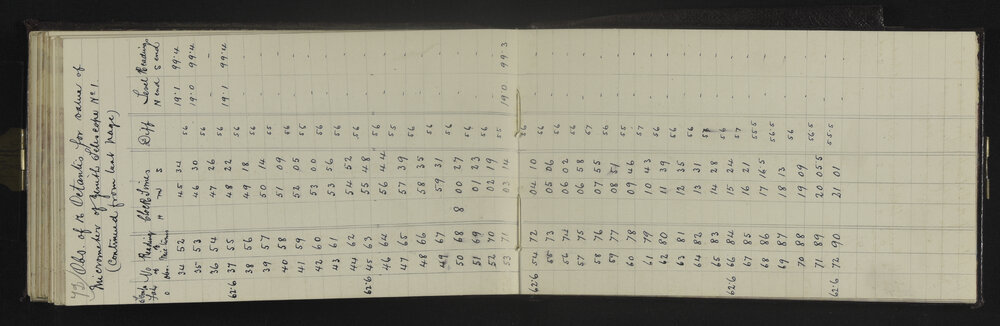 73) Obs. of κ Octantis for value of
Micrometer of Zenith Telescope No 1.
(Continued from last page)
Temp Fah No of Obsn Reading of Mic turns Clock Times Diff Level Readings
o H M S N end S end
34 52 45 34 56 19.1 99.4
35 53 46 30 56 19.0 99.4
36 54 47 26 56 - -
62.6 37 55 48 22 56 19.1 99.4
38 56 49 18 56 - -
39 57 50 14 55 - -
40 58 51 09 56 - -
41 59 52 05 55 - -
42 60 53 00 56 - -
43 61 53 56 56 - -
44 62 54 52 56 - -
62.6 45 63 55 48 56 - -
46 64 56 44 55 - -
47 65 57 39 56 - -
48 66 58 35 56 - -
49 67 59 31 56 - -
50 68 8 00 27 56 - -
51 69 01 23 56 - -
52 70 02 19 55 - -
53 71 03 14 56 19.0 99.3
62.6 54 72 04 10 56 - -
55 73 05 06 56 - -
56 74 06 02 56 - -
57 75 06 58 57 - -
58 76 07 55 56 - -
59 77 08 51 55 - -
60 78 09 46 57 - -
61 79 10 43 56 - -
62 80 11 39 56 - -
63 81 12 35 56 - -
64 82 13 31 57 - -
65 83 14 28 56 - -
62.6 66 84 15 24 57 - -
67 85 16 21 55.5 - -
68 86 17 16.5 56.5 - -
69 87 18 13 56 - -
70 88 19 09 56.5 - -
71 89 20 05.5 55.5 - -
62.6 72 90 21 01 - -